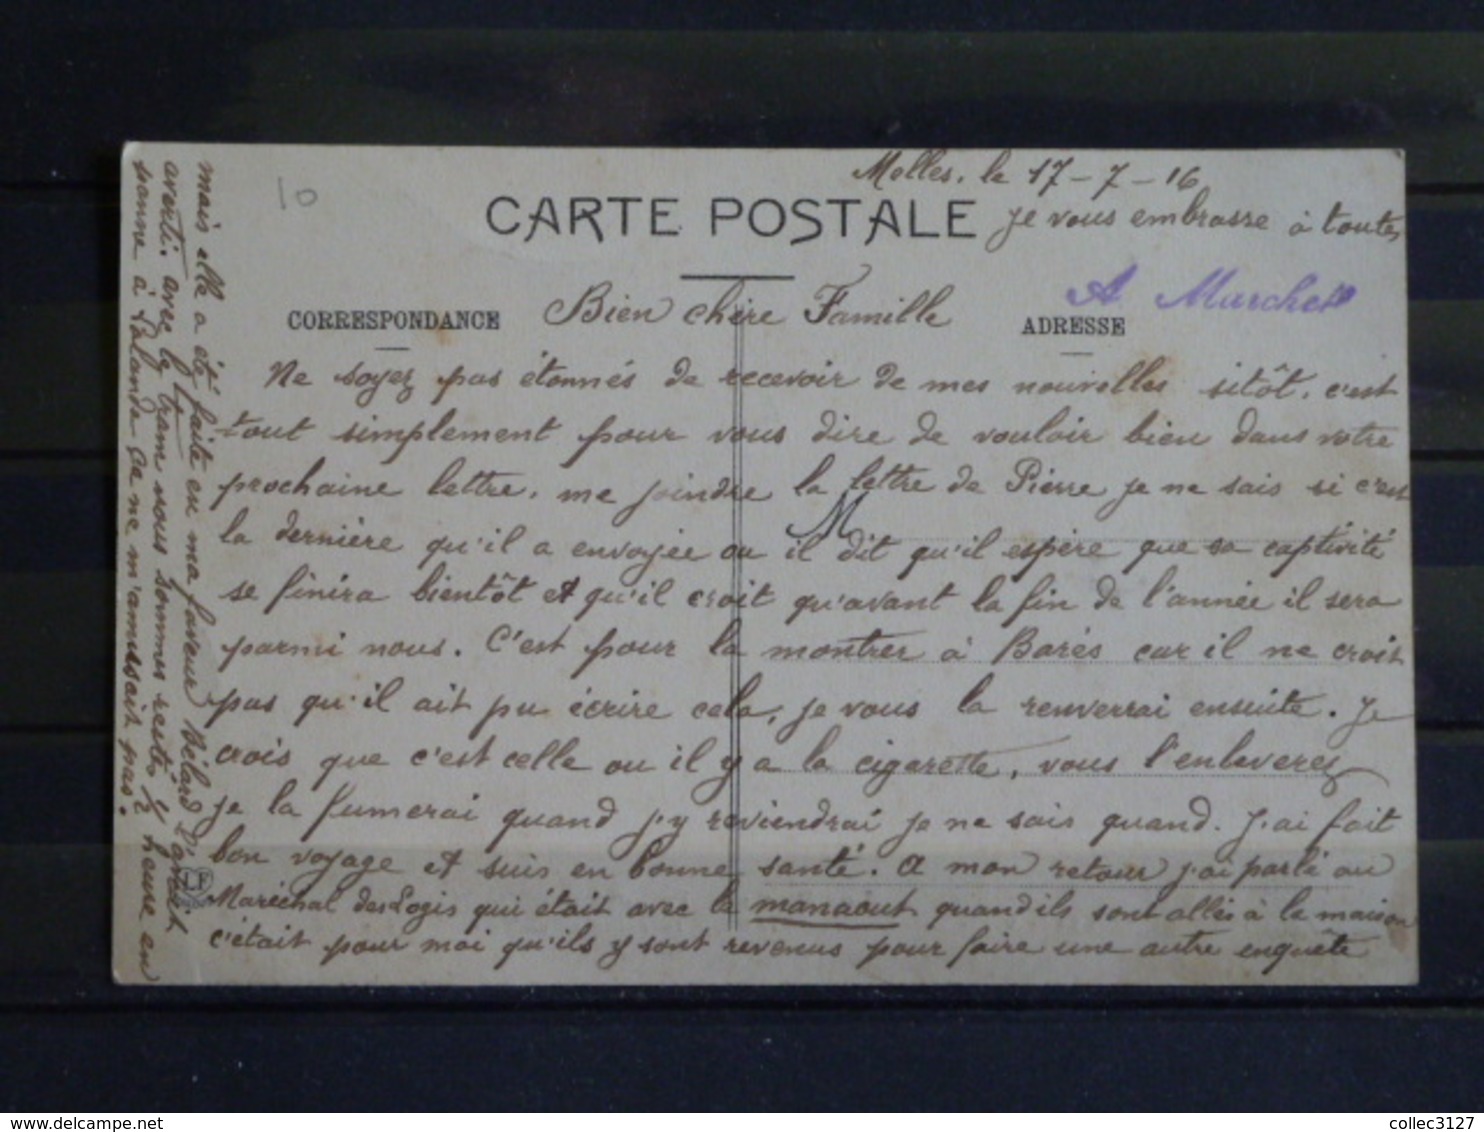 10
Melles, le 17-7-16
CARTE POSTALE
je vous embrasse à toutes
A Marchet
CORRESPONDANCE
Bien chère Famille
ADRESSE
Ne soyez pas étonnés de recevoir de mes nouvelles sitôt, c'est
tout simplement pour vous dire de vouloir bien dans votre
prochaine lettre, me joindre la lettre de Pierre je ne sais si c'est
la dernière qu'il a envoyée ou il M dit qu'il espère que sa captivité
se finira bientôt et qu'il croit qu'avant la fin de l'année il sera
parmi nous. C'est pour la montrer à Barès car il ne croit
pas qu'il ait pu écrire cela, je vous la renverrai ensuite. Je
crois que c'est celle ou il y a la cigarette, vous l'enleverez
je la fumerai quand j'y reviendrai je ne sais quand. J'ai fait
bon voyage et suis en bonne santé. a mon retour j'ai parlé au
Maréchal des Logis qui était avec le manaout quand ils sont allés à la maison
c'était pour moi qu'ils y sont revenus pour faire une autre enquête
mais elle a été faite en ma faveur Bélard l'avait
averti. avec le tram nous sommes restés ½ heure en
panne à ça ne m'amusait pas.
LF
delcampe.net
collec3127